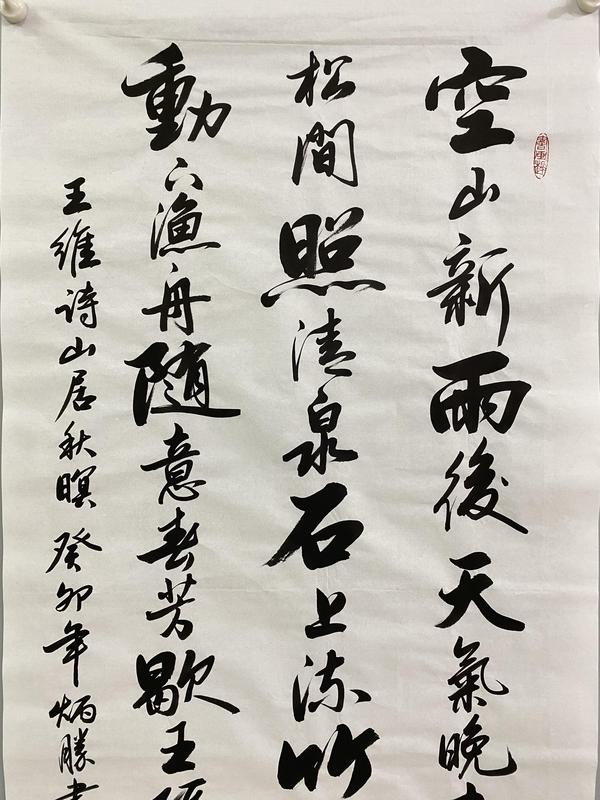 空山新雨後天氣晚
松間照清泉石上流竹
動下漁舟隨意春芳歇王
王維诗山居秋暝癸卯年炳勝書